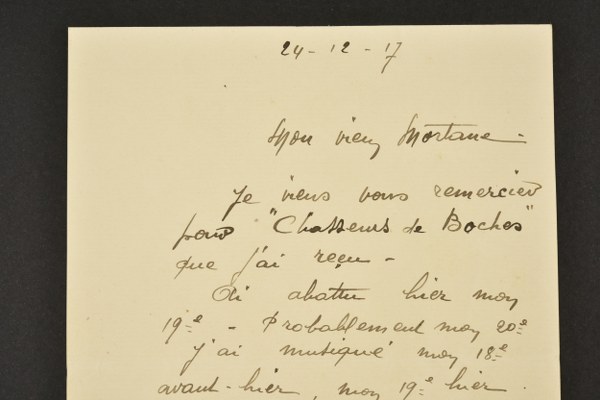 24 - 12 - 17
Mon vieux Mortane -
Je viens vous remercier
pour "Chasseurs de Boches"
que j'ai reçu -
Ai abattu hier mon
19e - Probablement mon 20e
j'ai musiqué mon 18e
avant-hier, mon 19e hier.